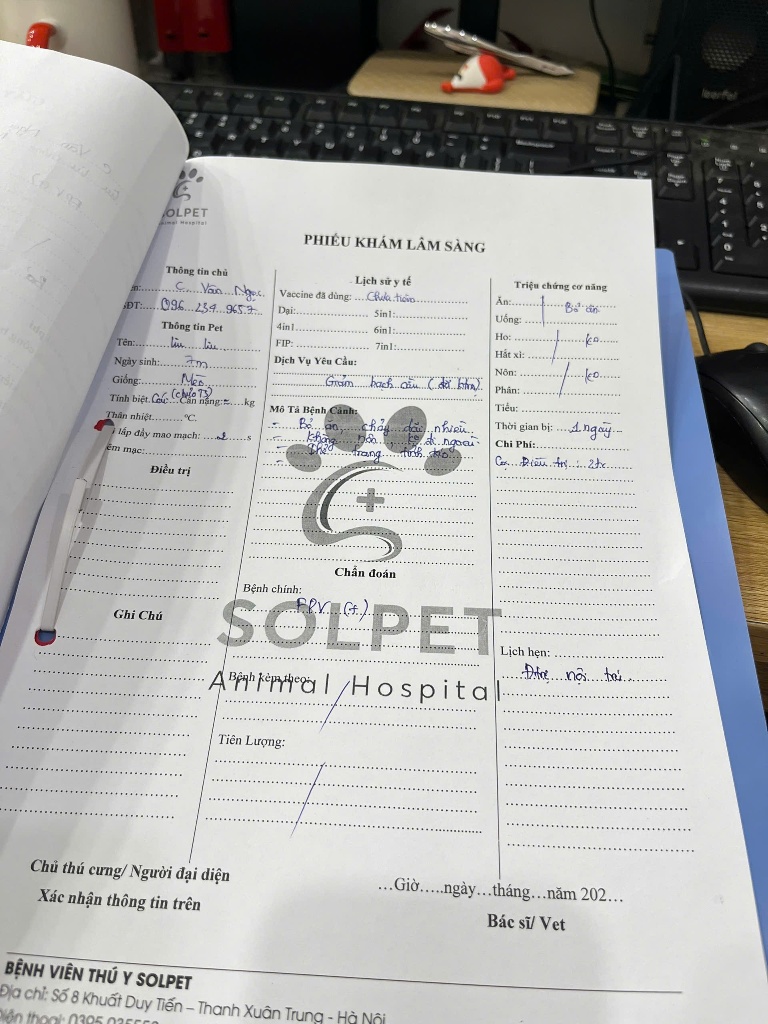 SOLPET
Animal Hospital
PHIẾU KHÁM LÂM SÀNG
Thông tin chủ
C Vân Ngọc
ĐT: 096 234 9657
Thông tin Pet
Tên: Líu Líu
Ngày sinh: 7m
Giống: Mèo
Tính biệt: Cái (chưa TS) Cân nặng: kg
Thân nhiệt °C.
lấp đầy mao mạch: 2 s
êm mạc:
Điều trị
Ghi Chú
Lịch sử y tế
Vaccine đã dùng: Chưa tiêm
Dại: 5in1:
4in1 6in1:
FIP: 7in1:
Dịch Vụ Yêu Cầu:
Giảm bạch cầu
Mô Tả Bệnh Cảnh:
- Bỏ ăn, chảy dãi nhiều
- không nôn, ko đi ngoài
- Thể trạng tỉnh táo
Chẩn đoán
Bệnh chính:
FPV (+)
SOLPET
Animal Hospital
Bệnh kèm theo:
Tiên Lượng:
Triệu chứng cơ năng
Ăn: Bỏ ăn
Uống:
Ho: ko
Hắt xì:
Nôn: ko
Phân:
Tiểu:
Thời gian bị: 1 ngày
Chi Phí:
Cọc Điều trị: 2tr
Lịch hẹn:
Đtrị nội trú
Chủ thú cưng/ Người đại diện
Xác nhận thông tin trên
…Giờ…..ngày…tháng…năm 202…
Bác sĩ/ Vet
BỆNH VIÊN THÚ Y SOLPET
Địa chỉ: Số 8 Khuất Duy Tiến – Thanh Xuân Trung - Hà Nội
Điện thoại: 0395